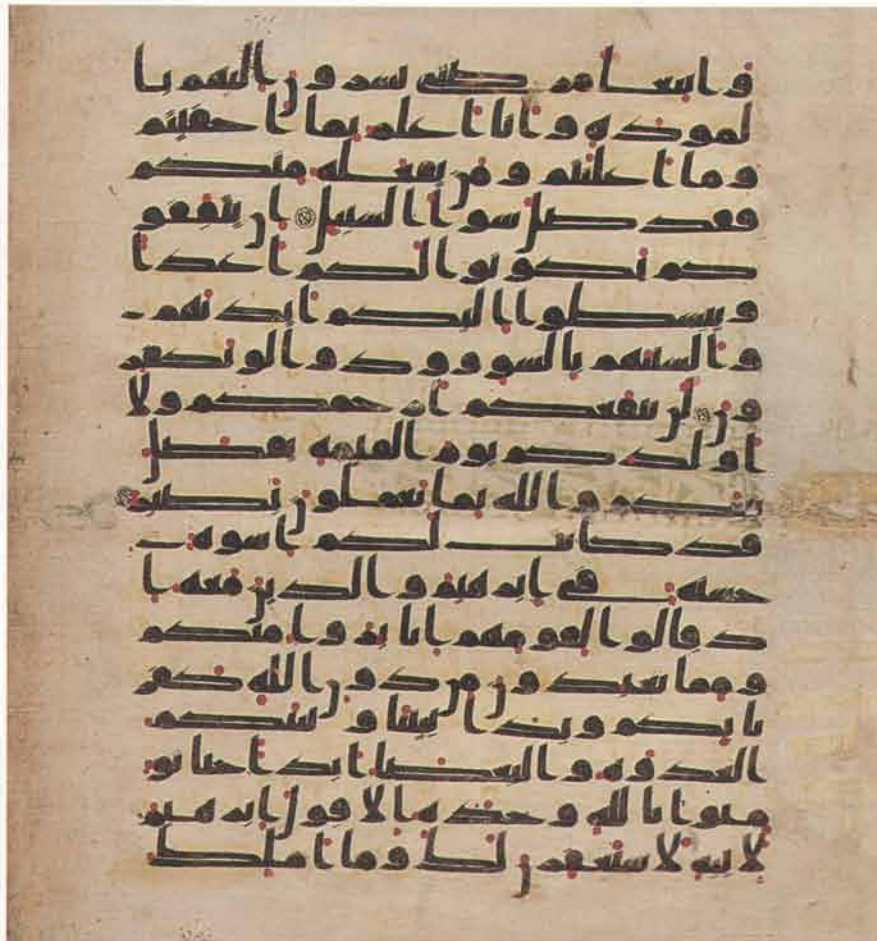 وابتغا مرضتي تسرون اليهم با
لموده وانا اعلم بما اخفيتم
وما اعلنتم ومن يفعله منكم
فقد ضل سوا السبيل ان يثقفو
كم يكونوا لكم اعدا
ويبسطوا اليكم ايديهم
والسنتهم بالسو وودوا لو تكفر
ون لن تنفعكم ارحمكم ولا
اولدكم يوم القيمه يفصل
بينكم والله بما تعملون بصير
قد كانت لكم اسوه
حسنه في ابرهيم والذين معه ا
ذ قالوا لقومهم انا برا منكم
ومما تعبدون من دون الله كفر
نا بكم وبدا بيننا وبينكم
العدوه والبغضا ابدا حتا تو
منوا بالله وحده الا قول ابرهيم
لابيه لاستغفرن لك وما املك